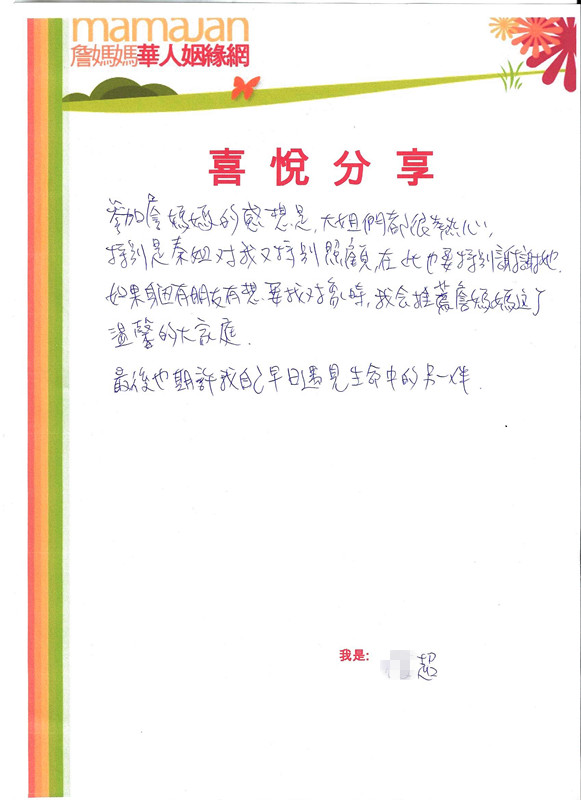 mamaJan
詹媽媽華人姻緣網
喜悅分享
參加詹媽媽的感想是,大姐們都很熱心,
特別是秦姐对我又特別照顧,在此也要特別謝謝她.
如果身边有朋友有想要找对象時,我会推薦詹媽媽这个
溫馨的大家庭.
最後也期許我自己早日遇見生命中的另一半.
我是: 超